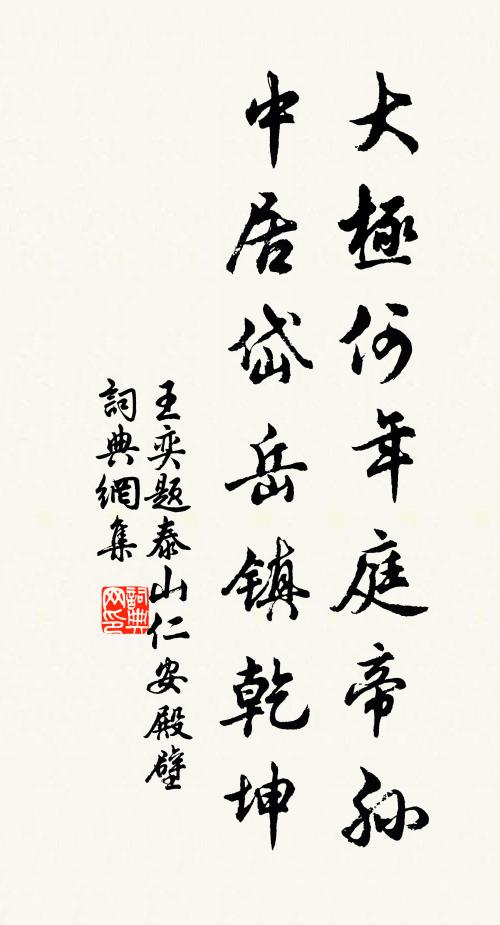 大極何年庭帝孫
中居岱岳鎮乾坤
王奕题泰山仁安殿壁
詞典網集
詞典网印